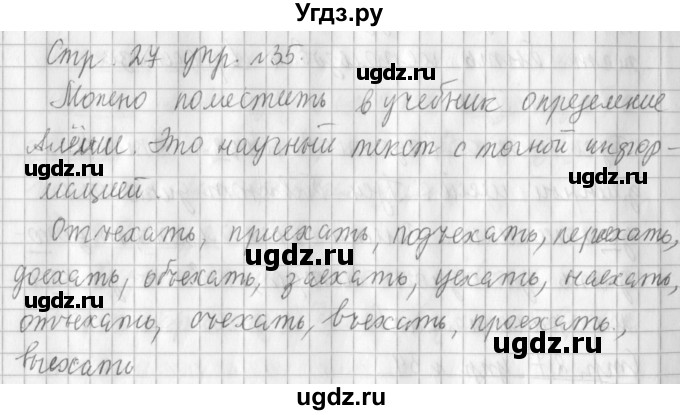 Угдз.ру
Стр. 27 упр. №35.
Можно поместить в учебник определение
Алёши. Это научный текст с точной инфор-
мацией.
Отъехать, приехать, подъехать, переехать,
доехать, объехать, заехать, уехать, наехать,
отъехать, съехать, въехать, проехать,
выехать
ugdz.ru
ugdz.ru
ugdz.ru
ugdz.ru
ugdz.ru
ugdz.ru
ugdz.ru
ugdz.ru